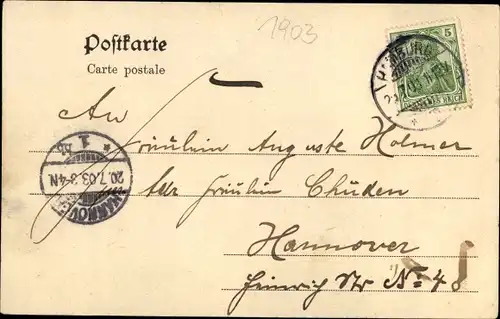 1903
Postkarte
Carte postale
5
HAMBURG
An
Fräulein Auguste Holmer
Adr Fräulein Chüden
Hannover
Heinrich Str No 48
HANNOVER
20.7.03.3-4N.
* 1 hb *